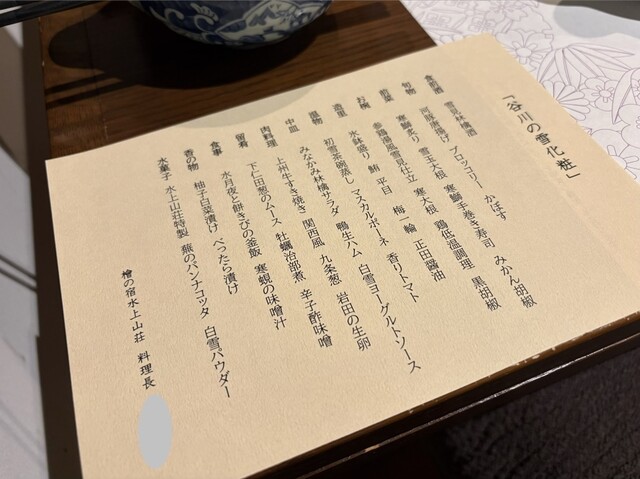 「谷川の雪化粧」
食前酒 雪割林檎酒
旬物 河豚唐揚げ ブロッコリー かぼす
前菜 寒鰤炙り 雪玉大根 寒鰤手巻き寿司 みかん胡椒
お椀 参鶏湯風雪見仕立 寒大根 鶏低温調理 黒胡椒
造里 氷鉢盛り 鮪 平目 梅一輪 正田醤油
温物 初雪茶碗蒸し マスカルポーネ 香りトマト
中皿 みなかみ林檎サラダ 鴨生ハム 白雪ヨーグルトソース
肉料理 上州牛すき焼き 関西風 九条葱 岩田の生卵
留肴 下仁田葱のムース 牡蠣治部煮 辛子酢味噌
食事 水月夜と餅きびの釜飯 寒蜆の味噌汁
香の物 柚子白菜漬け べったら漬け
水菓子 水上山荘特製 蕪のパンナコッタ 白雪パウダー
檜の宿水上山荘 料理長